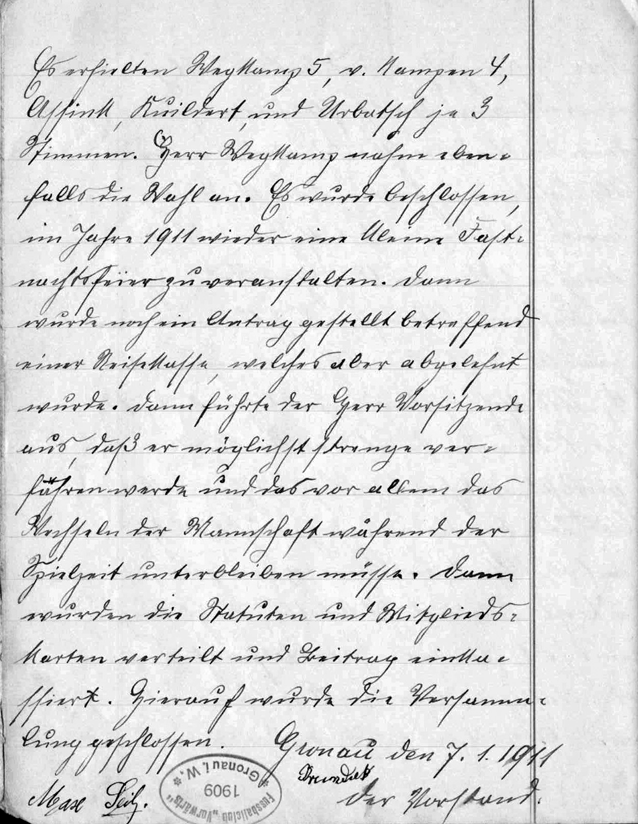 Es erhielten Wegkamp 5, v. Kampen 4,
Assink, Kuildert, und Urbatsch je 3
Stimmen. Herr Wegkamp nahm eben-
falls die Wahl an. Es wurde beschlossen,
im Jahre 1911 wieder eine kleine Fast-
nachtsfeier zu veranstalten. Dann
wurde noch ein Antrag gestellt betreffend
einer Reisekasse, welches aber abgelehnt
wurde. Dann führte der Herr Vorsitzende
aus, daß er möglichst strenge ver-
fahren werde und das vor allem das
Wechseln der Mannschaft während der
Spielzeit unterbleiben müsse. Dann
wurden die Statuten und Mitglieds-
karten verteilt und Beitrag einka-
ssiert. Hierauf wurde die Versamm-
lung geschlossen.
Gronau den 7. 1. 1911
Der Vorstand.
Max
Fussballclub "Vorwärts"
1909
* Gronau i. W. *